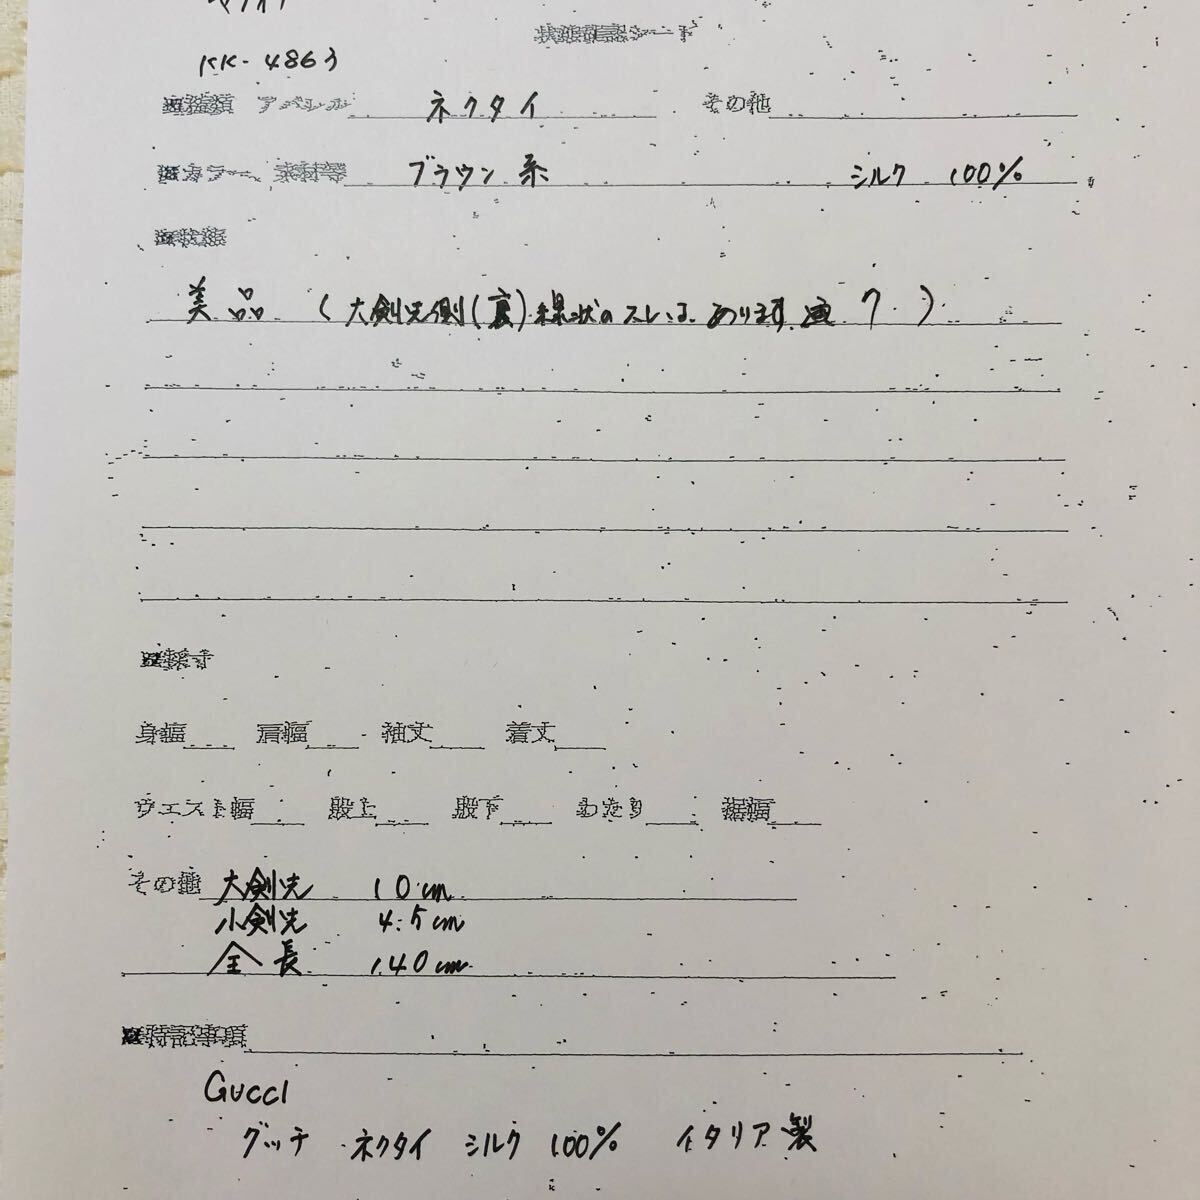 状態確認シート
KK-4863
種類 アパレル ネクタイ その他
カラー、素材等 ブラウン系 シルク 100%
状態
美品 (大剣先側(裏)線状のスレあります。 7)
採寸
身幅 肩幅 袖丈 着丈
ウエスト幅 股上 股下 わたり 裾幅
その他 大剣先 10cm
小剣先 4.5cm
全長 140cm
特記事項
GUCCI
グッチ ネクタイ シルク 100% イタリア製